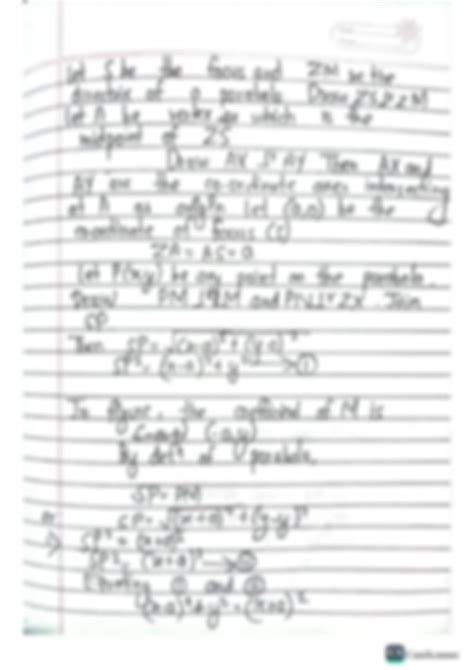 Let S be the focus and ZM be the
directrix of a parabola. Draw ZS ⊥ ZM
Let A be vertex which is the
midpoint of ZS
Draw AX ⊥ AY Then AX and
AY are the co-ordinate axes intersecting
at A as origin Let (a,0) be the
coordinate of focus (S)
ZA = AS = a
Let P(x,y) be any point on the parabola.
Draw PM ⊥ ZM and PN ⊥ ZX. Join
SP.
Then SP = √(x-a)² + (y-0)²
SP² = (x-a)² + y² → ①
In figure, the of M is
(-a,y)
By defⁿ of parabola,
SP = PM
SP = √(x+a)² + (y-y)²
SP² = (x+a)²
SP² = (x+a)² → ②
Equating ① and ②
(x-a)² + y² = (x+a)²
CamScanner